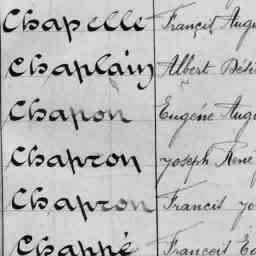 Chapelle Francis Augu
Chaplain Albert Dési
Chapon Eugéne Augu
Chapron Joseph René
Chapron Francis Jo
Chappé François Ed